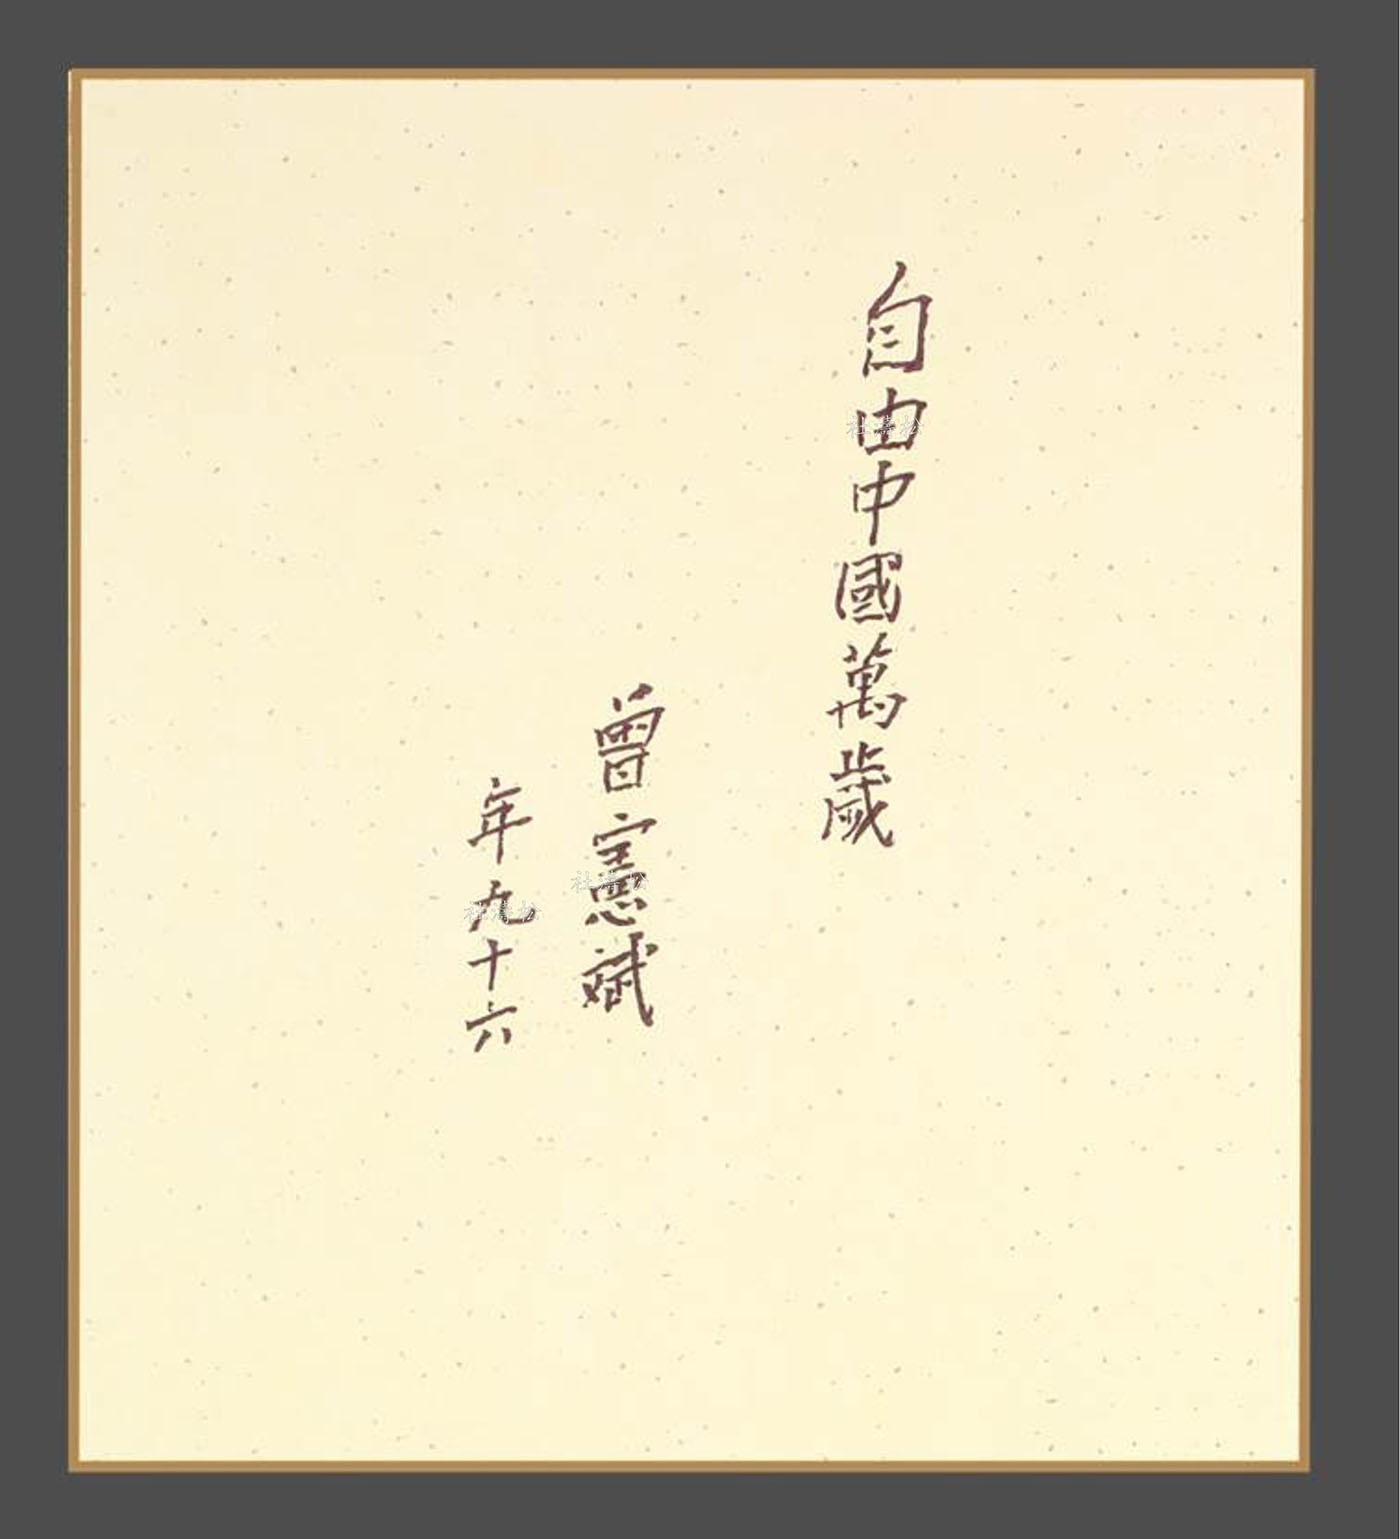 自由中國萬歲
曾憲斌
年九十六